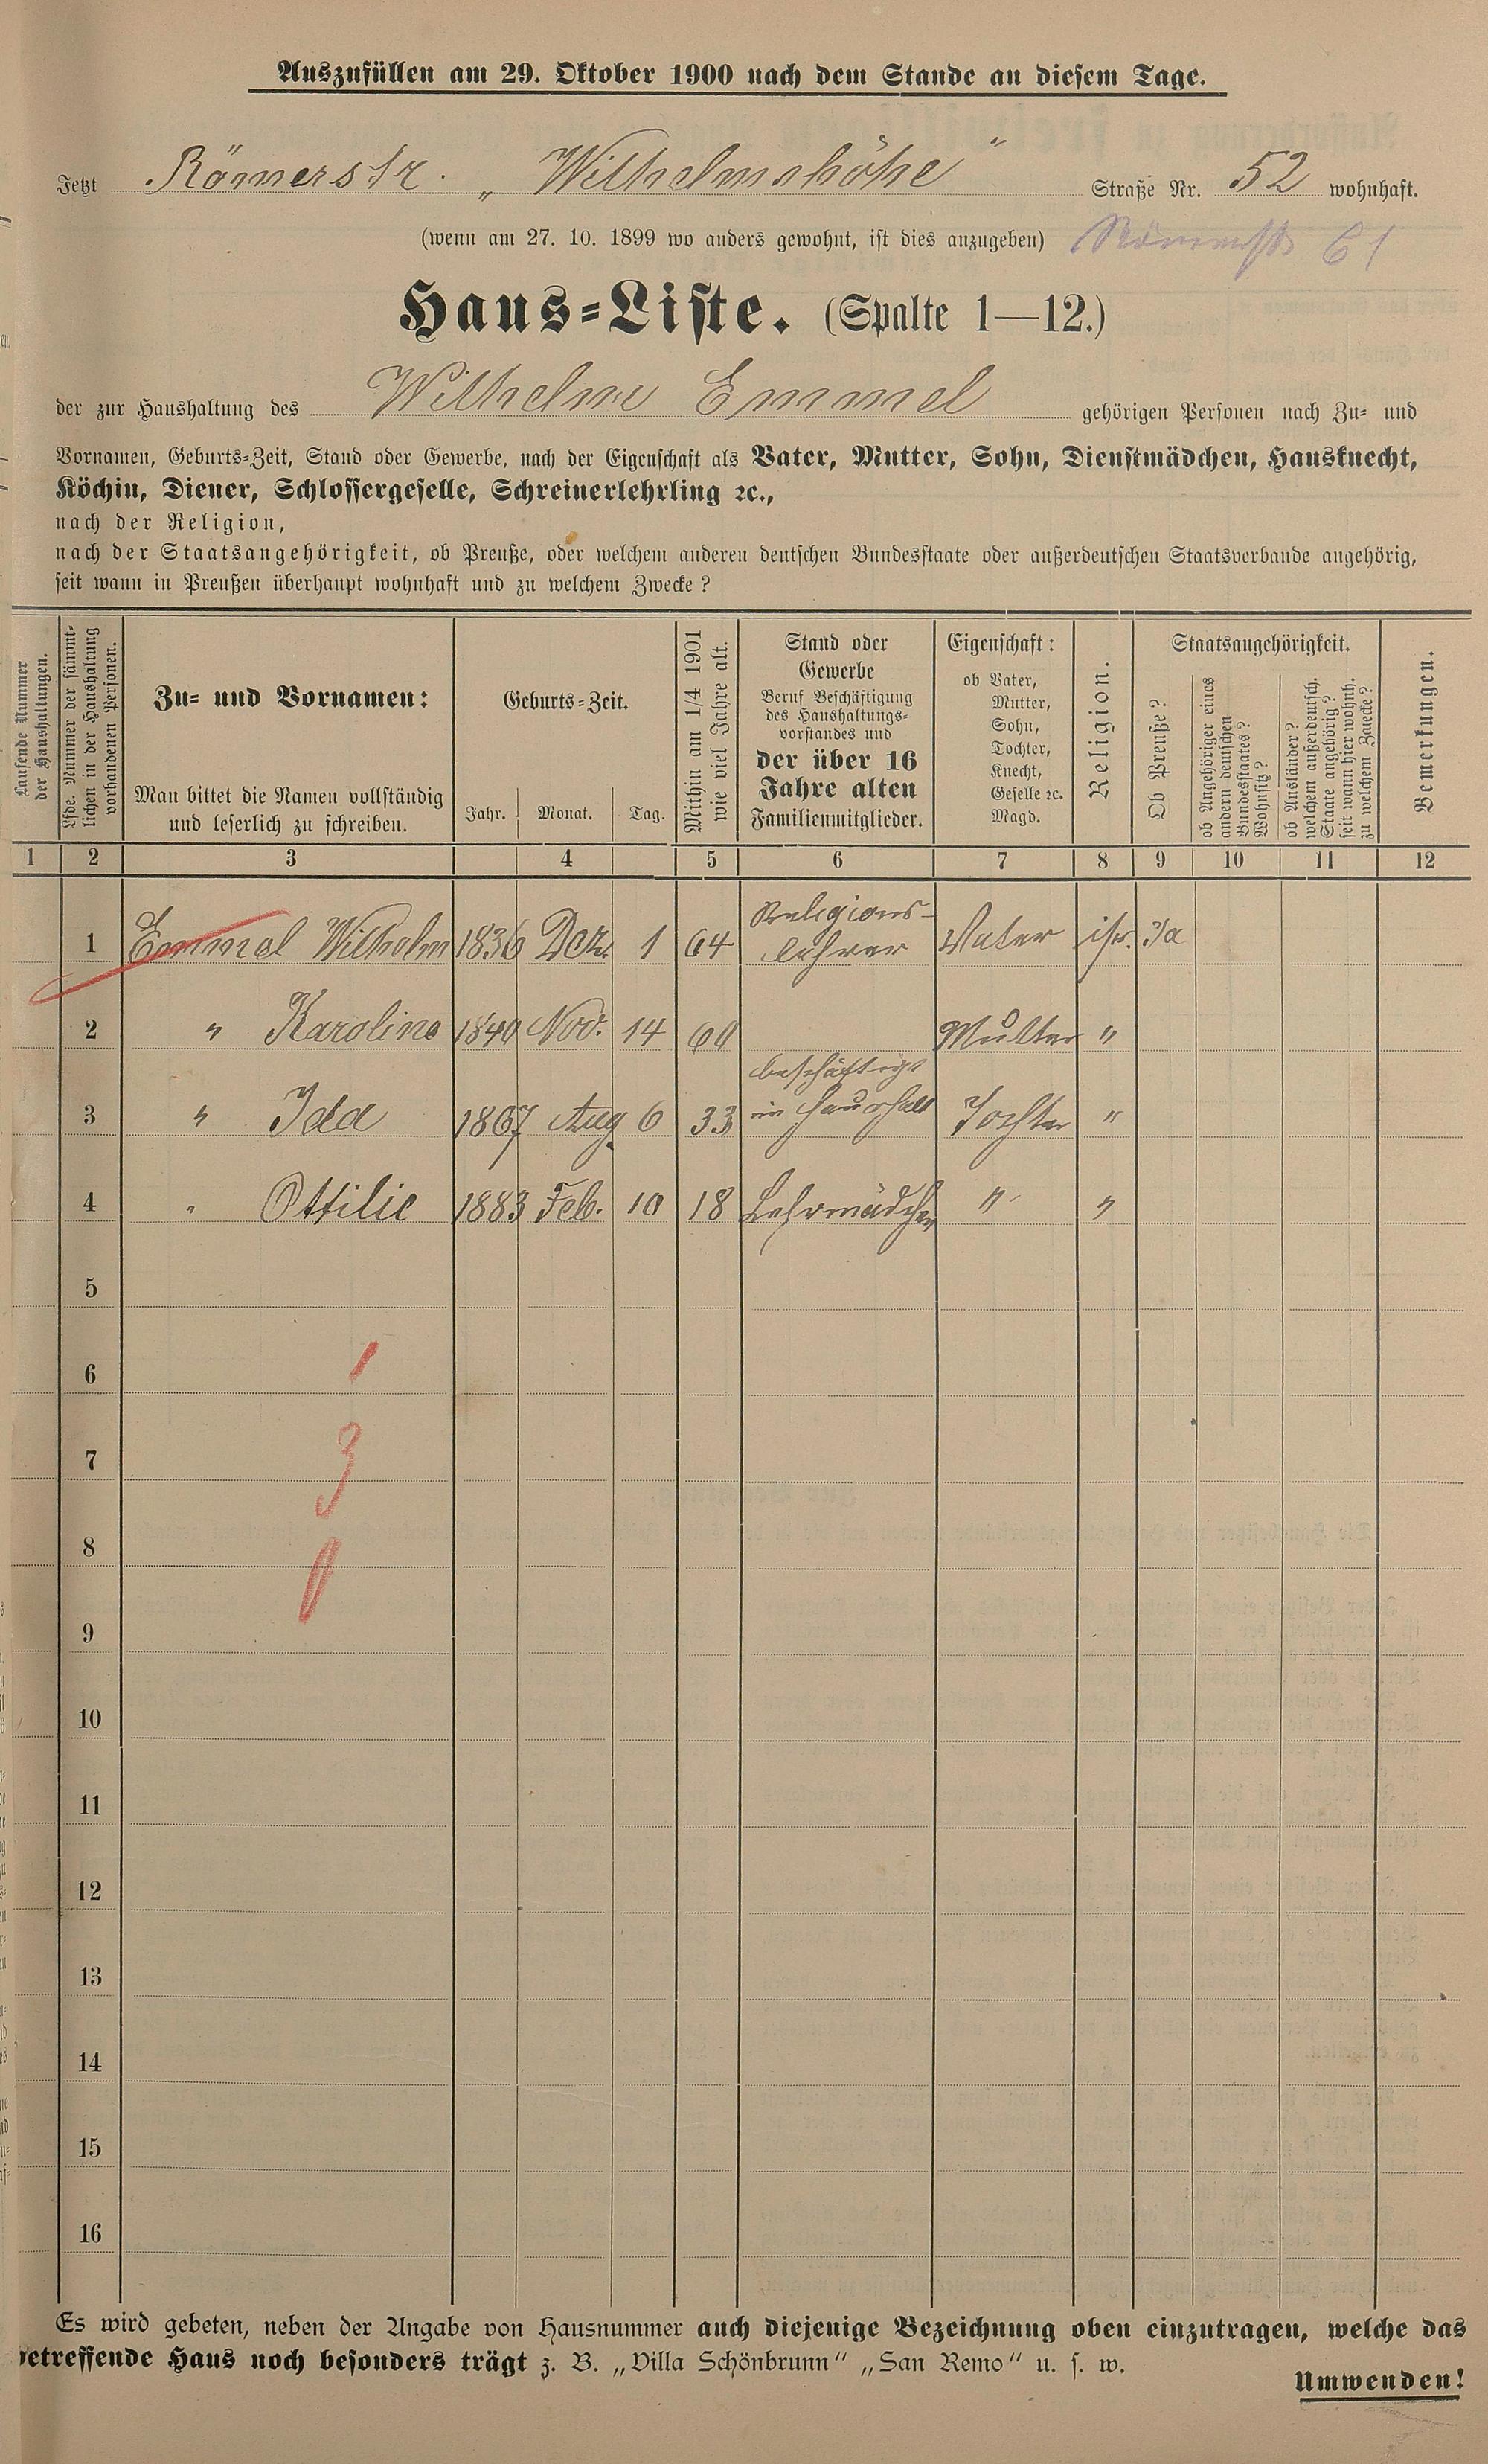 Auszufüllen am 29. Oktober 1900 nach dem Stande an diesem Tage.
Jetzt Römerstr. „Wilhelmshöhe" Straße Nr. 52 wohnhaft.
(wenn am 27. 10. 1899 wo anders gewohnt, ist dies anzugeben) Römerstr 61
Haus-Liste. (Spalte 1—12.)
der zur Haushaltung des Wilhelm Emmel gehörigen Personen nach Zu- und
Vornamen, Geburts-Zeit, Stand oder Gewerbe, nach der Eigenschaft als Vater, Mutter, Sohn, Dienstmädchen, Hausknecht,
Köchin, Diener, Schlossergeselle, Schreinerlehrling ꝛc.,
nach der Religion,
nach der Staatsangehörigkeit, ob Preuße, oder welchem anderen deutschen Bundesstaate oder außerdeutschen Staatsverbande angehörig,
seit wann in Preußen überhaupt wohnhaft und zu welchem Zwecke?
Laufende Nummer
der Haushaltungen.
Lfde. Nummer der sämmt-
lichen in der Haushaltung
vorhandenen Personen.
Zu- und Vornamen:
Man bittet die Namen vollständig
und leserlich zu schreiben.
Geburts-Zeit.
Jahr. Monat. Tag.
Mithin am 1/4 1901
wie viel Jahre alt.
Stand oder
Gewerbe
Beruf Beschäftigung
des Haushaltungs-
vorstandes und
der über 16
Jahre alten
Familienmitglieder.
Eigenschaft:
ob Vater,
Mutter,
Sohn,
Tochter,
Knecht,
Geselle ꝛc.
Magd.
Religion.
Staatsangehörigkeit.
Ob Preuße?
ob Angehöriger eines
andern deutschen
Bundesstaates?
Wohnsitz?
ob Ausländer?
welchem außerdeutsch.
Staate angehörig?
seit wann hier wohnh.
zu welchem Zwecke?
Bemerkungen.
1 2 3 4 5 6 7 8 9 10 11 12
1 Emmel Wilhelm 1836 Dez. 1 64 Religions-
lehrer Vater isr. Ja
2 " Karoline 1840 Nov. 14 60 Mutter "
3 " Ida 1867 Aug 6 33 beschäftigt
im Haushalt Tochter "
4 " Ottilie 1883 Feb. 10 18 Lehrmädchen " "
5
6 1
7 3
8 0
9
10
11
12
13
14
15
16
Es wird gebeten, neben der Angabe von Hausnummer auch diejenige Bezeichnung oben einzutragen, welche das
betreffende Haus noch besonders trägt z. B. „Villa Schönbrunn" „San Remo" u. s. w.
Umwenden!